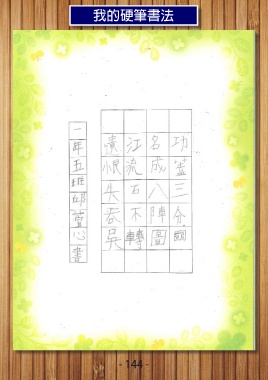 我的硬筆書法
功蓋三分國
名成八陣圖
江流石不轉
遺恨失吞吳
一年五班邱萱心書
- 144 -